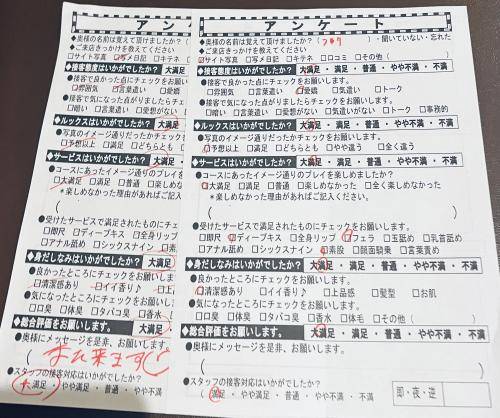 アン
◆奥様の名前は覚えて頂けましたか？（
◆ご来店きっかけを教えてください
□サイト写真 □写メ日記 □キテネ
◆接客態度はいかがでしたか？ 大満足
●接客で良かった点にチェックをお願いし
□雰囲気 □言葉遣い □愛嬌
●接客で気になった点がありましたらチャ
□暗い □言葉遣い □愛想がない
◆ルックスはいかがでしたか？ 大満足
●写真のイメージ通りだったかチェックを
□予想以上 □満足 □どちらとも
◆サービスはいかがでしたか？ 大満足
●コースにあったイメージ通りのプレイを
□大満足 □満足 □普通 □楽しめな
＊楽しめなかった理由があればご記入
（
●受けたサービスで満足されたものにチェ
□即尺 □ディープキス □全身リップ
□アナル舐め □シックスナイン □素股
◆身だしなみはいかがでしたか？ 大満足
●良かったところにチェックをお願いしま
□清潔感あり □イイ香り♪ □上
●気になったところにチェックをお願いし
□口臭 □体臭 □タバコ臭 □香水
◆総合評価をお願いします。 大満足
●奥様にメッセージを是非、お願いします
（また来ます
●スタッフの接客対応はいかがでしたか？
大満足 ・ やや満足 ・ 普通 ・ やや不満
アンケート
◆奥様の名前は覚えて頂けましたか？（ ）・聞いていない・忘れた
◆ご来店きっかけを教えてください
□サイト写真 □写メ日記 □キテネ □口コミ □その他（
◆接客態度はいかがでしたか？ 大満足 ・ 満足 ・ 普通 ・ やや不満 ・ 不満
●接客で良かった点にチェックをお願いします。
□雰囲気 □言葉遣い □愛嬌 □気遣い □トーク
●接客で気になった点がありましたらチェックをお願いします。
□暗い □言葉遣い □愛想がない □気遣いがない □トーク □事務的
◆ルックスはいかがでしたか？ 大満足 ・ 満足 ・ 普通 ・ やや不満 ・ 不満
●写真のイメージ通りだったかチェックをお願いします。
□予想以上 □満足 □どちらとも □やや違う □全く違う
◆サービスはいかがでしたか？ 大満足 ・ 満足 ・ 普通 ・ やや不満 ・ 不満
●コースにあったイメージ通りのプレイを楽しめましたか？
□大満足 □満足 □普通 □楽しめなかった □全く楽しめなかった
＊楽しめなかった理由があればご記入ください。
（ ）
●受けたサービスで満足されたものにチェックをお願いします。
□即尺 □ディープキス □全身リップ □フェラ □玉舐め □乳首舐め
□アナル舐め □シックスナイン □素股 □顔面騎乗 □言葉責め
◆身だしなみはいかがでしたか？ 大満足 ・ 満足 ・ 普通 ・ やや不満 ・ 不満
●良かったところにチェックをお願いします。
□清潔感あり □イイ香り♪ □上品感 □髪型 □お肌
●気になったところにチェックをお願いします。
□口臭 □体臭 □タバコ臭 □香水 □体毛 □その他（
◆総合評価をお願いします。 大満足 ・ 満足 ・ 普通 ・ やや不満 ・ 不満
●奥様にメッセージを是非、お願いします。
（ ）
●スタッフの接客対応はいかがでしたか？
満足 ・ やや満足 ・ 普通 ・ やや不満 ・ 不満
即・夜・逆